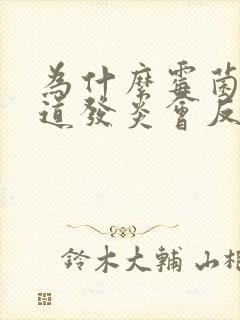 為什麼霉菌
道發炎會反
鈴木大輔 山根